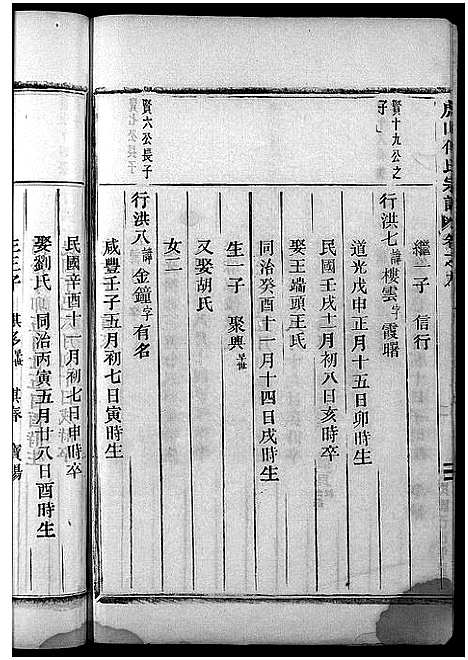 繼一子 信行
賢十九公之子
行洪七 諱樓雲 字霞曙
道光戊申正月十五日卯時生
民國壬戌十一月初八日亥時卒
娶王端頭王氏
同治癸酉十一月十四日戌時生
生一子 聚興
又娶胡氏
女二
賢六公長子
行洪八 諱金鐘 字有名
咸豐壬子五月初七日寅時生
民國辛酉十一月初七日申時卒
娶劉氏 同治丙寅五月廿八日酉時生